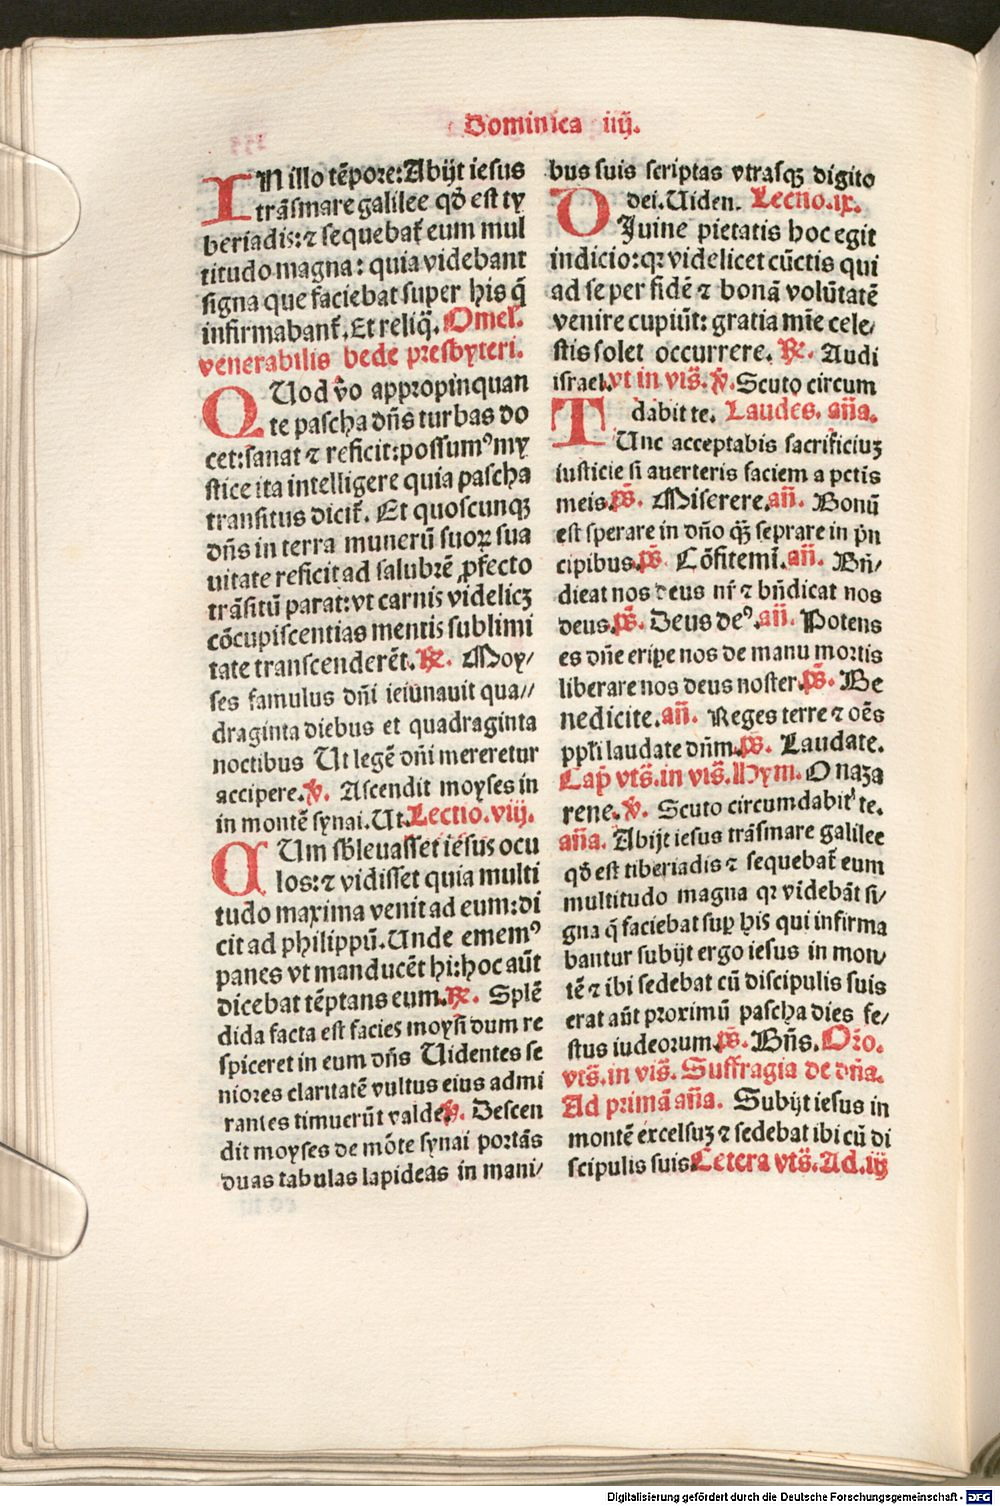 Dominica iiij.
IN illo tēpore: Abijt iesus
trāsmare galilee qđ est ty
beriadis: ⁊ sequebat̄ eum mul
titudo magna: quia videbant
signa que faciebat super his q̄
infirmabant̄. Et reliq̄. Omel̄.
venerabilis bede presbyteri.
QUod v̄o appropinquan
te pascha dn̄s turbas do
cet: sanat ⁊ reficit: possumꝰ my
stice ita intelligere quia pascha
transitus dicit̄. Et quoscunqꝫ
dn̄s in terra munerū suoꝝ sua
uitate reficit ad salubrē ꝓfecto
trāsitū parat: vt carnis videlicꝫ
cōcupiscentias mentis sublimi
tate transcenderēt. ℟. Moy⸗
ses famulus dn̄i ieiunauit qua⸗
draginta diebus et quadraginta
noctibus Ut legē dn̄i mereretur
accipere. ℣. Ascendit moyses in
in montē synai. Ut. Lectio. viij.
CUm sb̄leuasset iesus ocu
los: ⁊ vidisset quia multi
tudo maxima venit ad eum: di
cit ad philippū. Unde ememꝰ
panes vt manducēt hi: hoc aūt
dicebat tēptans eum. ℟. Splē
dida facta est facies moysi dum re
spiceret in eum dn̄s Uidentes se
niores claritatē vultus eius admi
rantes timuerūt valde. ℣. Descen
dit moyses de mōte synai portās
duas tabulas lapideas in mani⸗
bus suis scriptas vtrasqꝫ digito
dei. Uiden. Lectio. ix.
DIuine pietatis hoc egit
indicio: qꝛ videlicet cūctis qui
ad se per fidē ⁊ bonā volūtatē
venire cupiūt: gratia mīe cele⸗
stis solet occurrere. ℟. Audi
israel. vt in vis̄. ℣. Scuto circum
dabit te. Laudes. an̄a.
TUnc acceptabis sacrificiuꝫ
iusticie si auerteris faciem a pctīs
meis. ps̄. Miserere. an̄. Bonū
est sperare in dn̄o qꝫ̄ seprare in pn̄
cipibus. ps̄. Cōfitemī. an̄. Bn̄⸗
dicat nos deus nr̄ ⁊ bn̄dicat nos
deus. ps̄. Deus deꝰ. an̄. Potens
es dn̄e eripe nos de manu mortis
liberare nos deus noster. ps̄. Be
nedicite. an̄. Reges terre ⁊ oēs
ppl̄i laudate dn̄m. ps̄. Laudate.
Cap̄ vts̄. in vis̄. Hym. O naza
rene. ℣. Scuto circumdabit te.
an̄a. Abijt iesus trāsmare galilee
qđ est tiberiadis ⁊ sequebat̄ eum
multitudo magna qꝛ videbāt si⸗
gna q̄ faciebat suꝑ his qui infirma
bantur subijt ergo iesus in mon⸗
tē ⁊ ibi sedebat cū discipulis suis
erat aūt proximū pascha dies fe⸗
stus iudeorum. ps̄. Bn̄s. Or̄o.
vts̄. in vis̄. Suffragia de dn̄a.
Ad primā an̄a. Subijt iesus in
montē excelsuꝫ ⁊ sedebat ibi cū di
scipulis suis. Cetera vts̄. Ad. iij
Digitalisierung gefördert durch die Deutsche Forschungsgemeinschaft - DFG